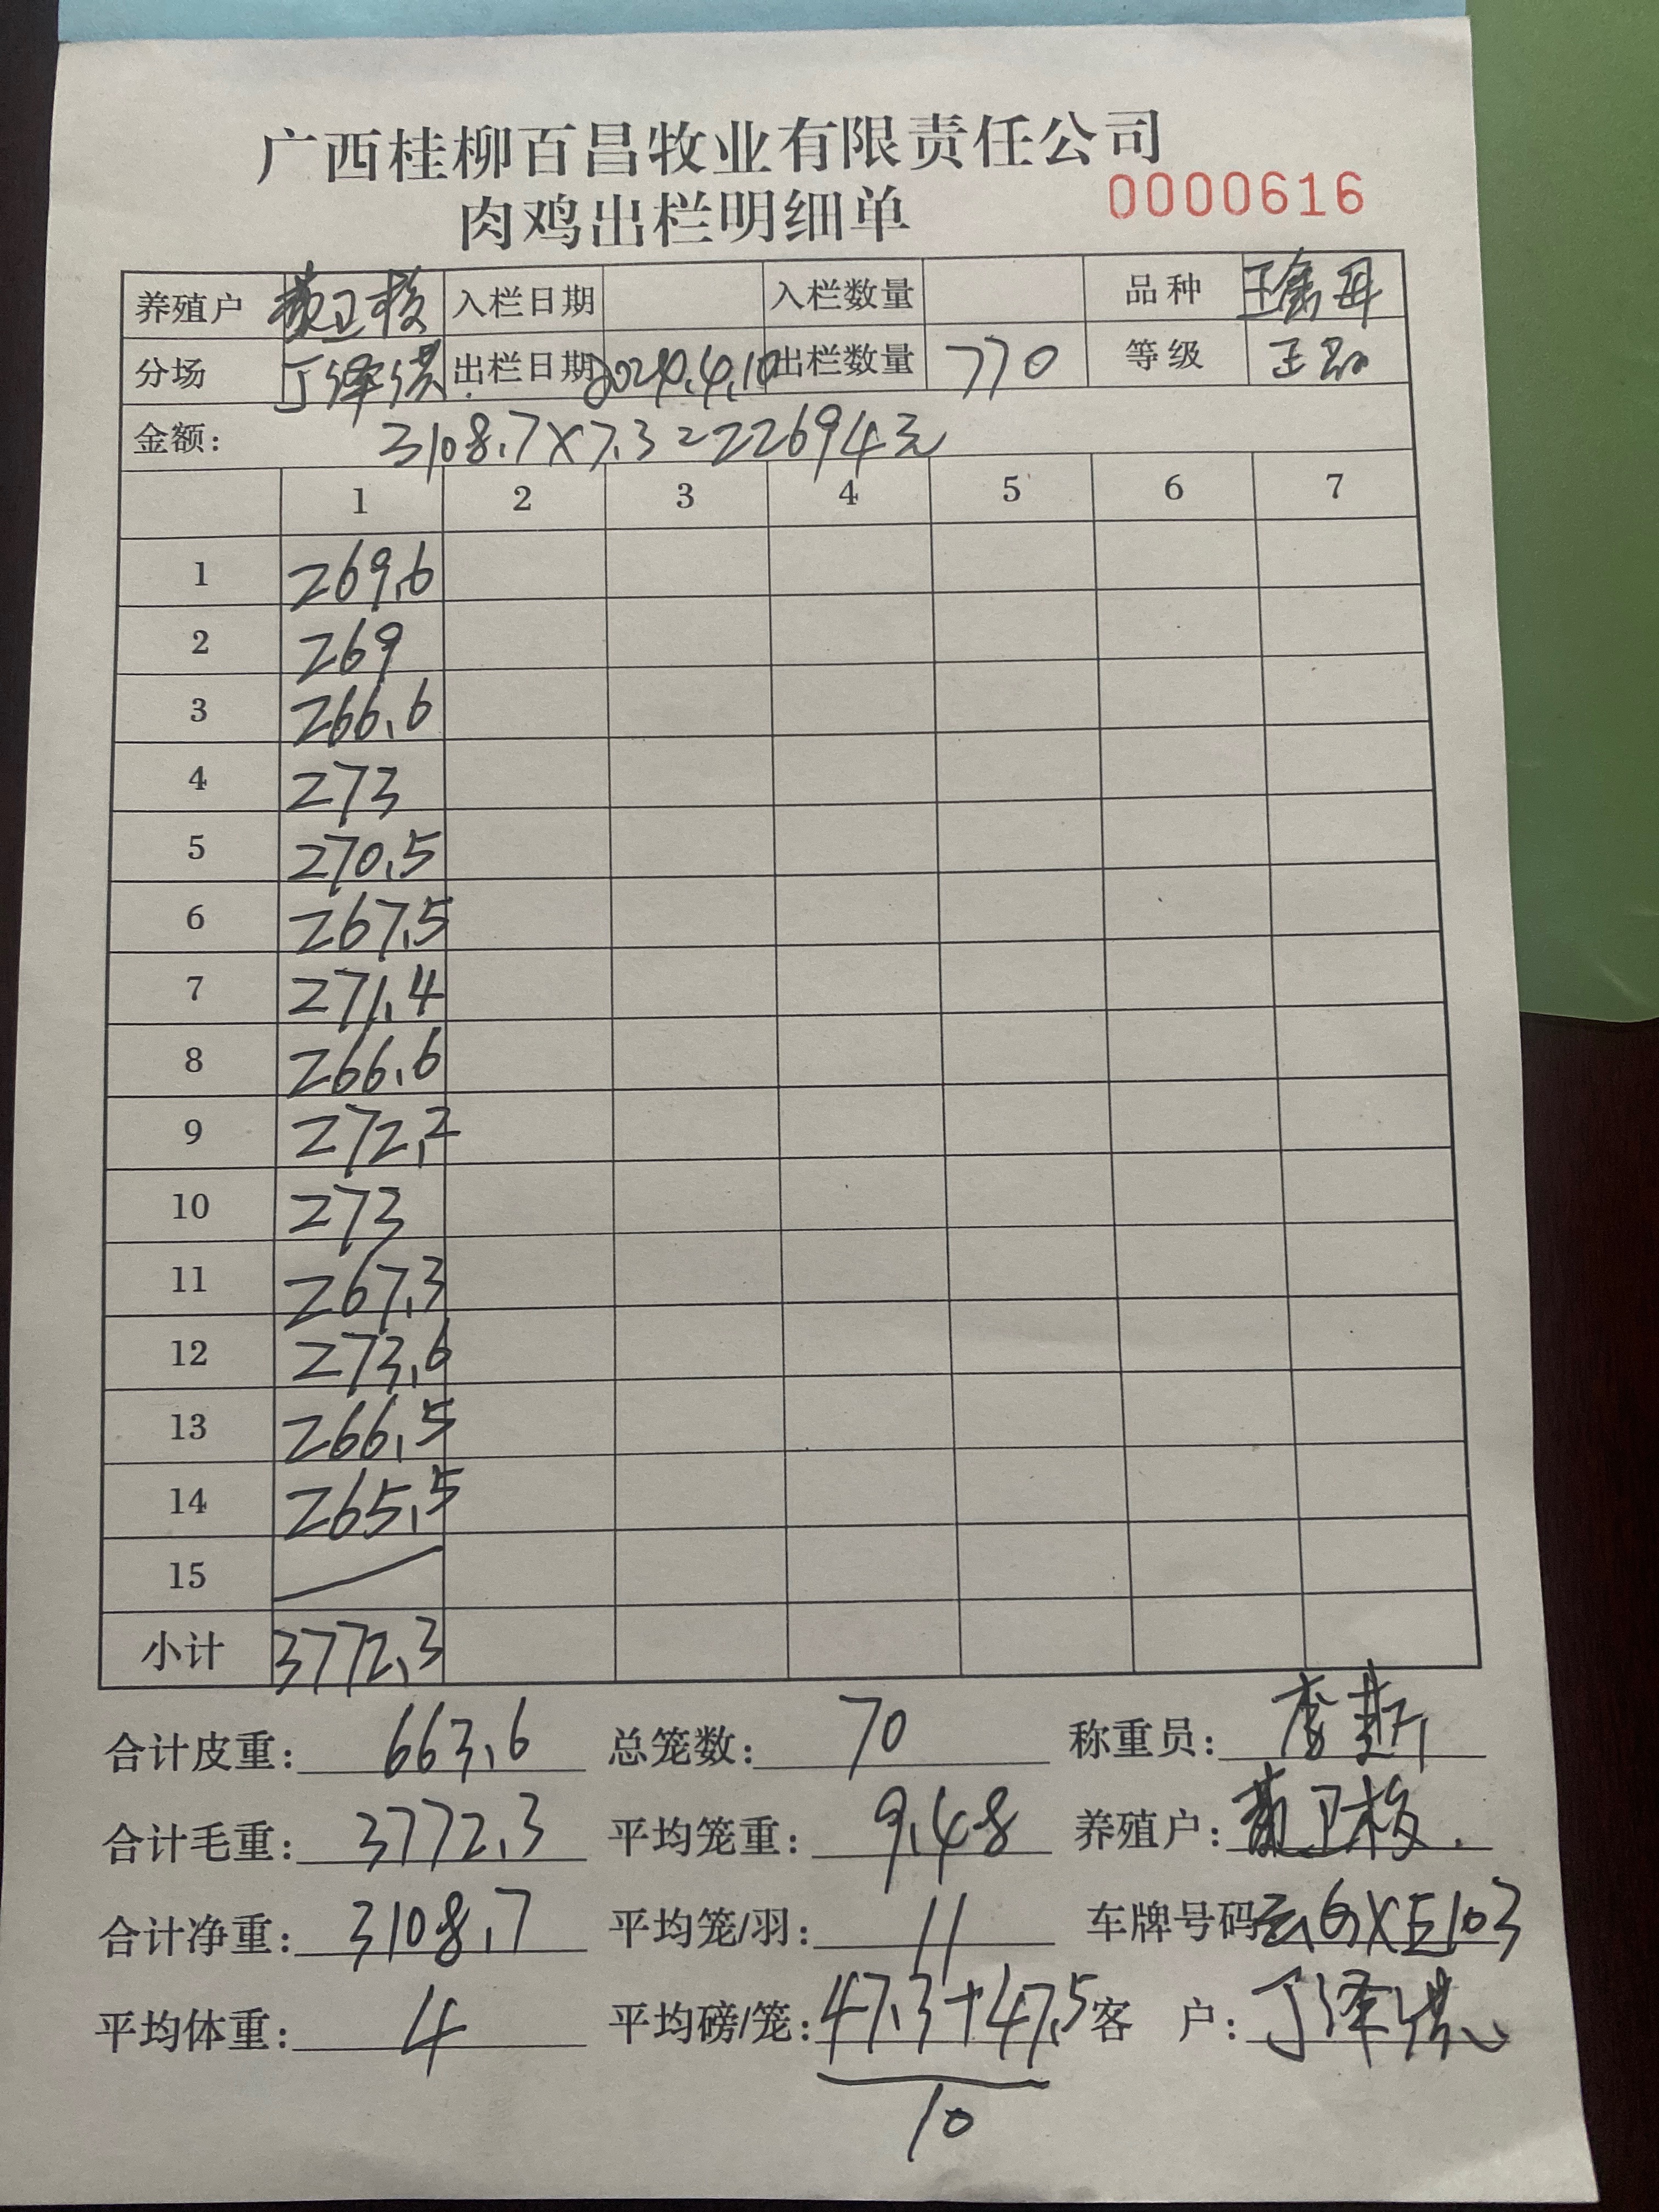 广西桂柳百昌牧业有限责任公司
肉鸡出栏明细单 0000616
养殖户 卫 入栏日期 入栏数量 品种
分场 丁泽洪 出栏日期 2024.4.10 出栏数量 770 等级 正品
金额: 3108.7×7.3=22694元
1 2 3 4 5 6 7
1 269.6
2 269
3 266.6
4 273
5 270.5
6 267.5
7 271.4
8 266.6
9 272.2
10 273
11 267.3
12 273.6
13 266.5
14 265.5
15
小计 3772.3
合计皮重: 663.6 总笼数: 70 称重员: 李
合计毛重: 3772.3 平均笼重: 9.48 养殖户: 卫
合计净重: 3108.7 平均笼/羽: 11 车牌号码 云G XE103
平均体重: 4 平均磅/笼: 47.3+47.5 客 户: 丁泽洪
10